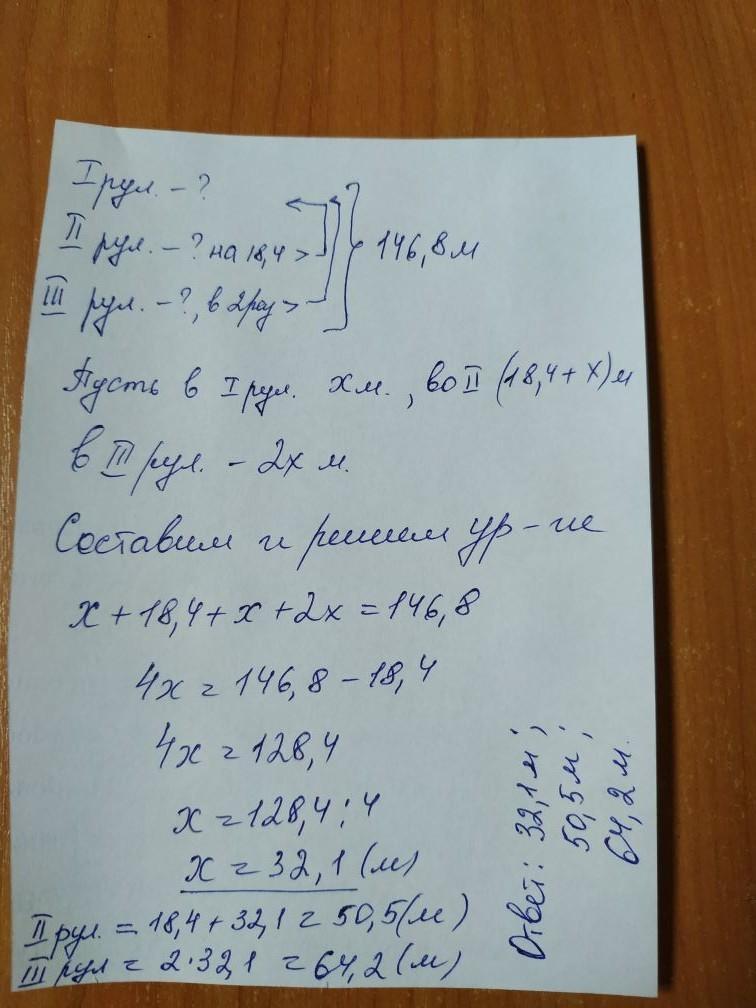 I рул. - ?
II рул. - ? на 18,4 >
III рул. - ?, в 2 раз >
146,8 м
Пусть в I рул. х м., во II (18,4 + х) м
в III рул. - 2х м.
Составим и решим ур-ие
х + 18,4 + х + 2х = 146,8
4х = 146,8 - 18,4
4х = 128,4
х = 128,4 : 4
х = 32,1 (м)
II рул. = 18,4 + 32,1 = 50,5 (м)
III рул = 2 · 32,1 = 64,2 (м)
Ответ: 32,1 м;
50,5 м;
64,2 м.